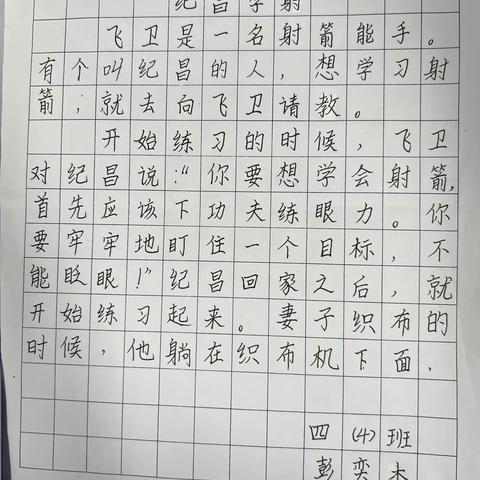 纪昌学射
飞卫是一名射箭能手。
有个叫纪昌的人，想学习射
箭，就去向飞卫请教。
开始练习的时候，飞卫
对纪昌说："你要想学会射箭，
首先应该下功夫练眼力。你
要牢牢地盯住一个目标，不
能眨眼！"纪昌回家之后，就
开始练习起来。妻子织布的
时候，他躺在织布机下面，
四（4）班
彭奕